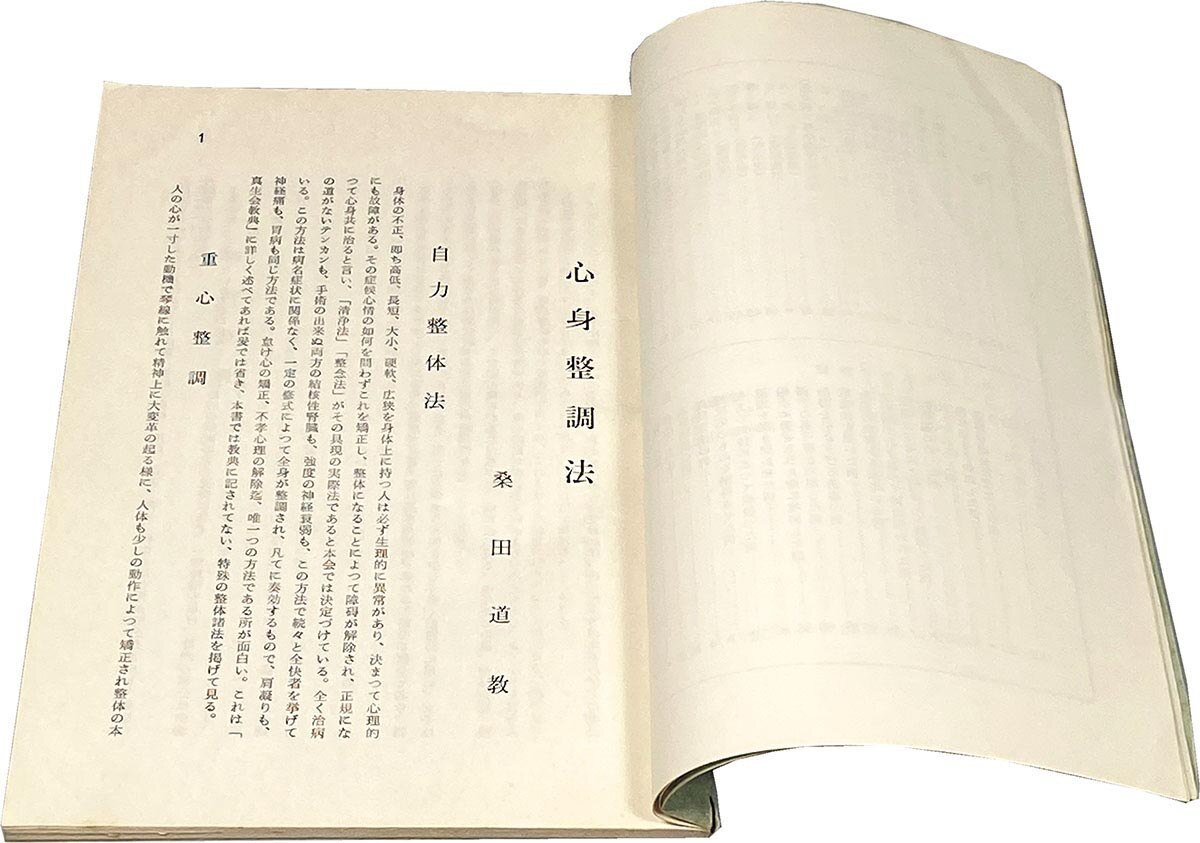 心身整調法
桑田道教
自力整体法
身体の不正、即ち高低、長短、大小、硬軟、広狭を身体上に持つ人は必ず生理的に異常があり、決まつて心理的
にも故障がある。その症候心情の如何を問わずこれを矯正し、整体になることによつて障碍が解除され、正規にな
つて心身共に治ると言い、「清浄法」「整念法」がその具現の実際法であると本会では決定づけている。全く治病
の道がないテンカンも、手術の出来ぬ両方の結核性腎臓も、強度の神経衰弱も、この方法で続々と全快者を挙げて
いる。この方法は病名症状に関係なく、一定の整式によつて全身が整調され、凡てに奏効するもので、肩凝りも、
神経痛も、胃病も同じ方法である。怠け心の矯正、不孝心理の解除迄、唯一つの方法である所が面白い。これは「
真生会教典」に詳しく述べてあれば爰では省き、本書では教典に記されてない、特殊の整体諸法を掲げて見る。
重心整調
人の心が一寸した動機で琴線に触れて精神上に大変革の起る様に、人体も少しの動作によつて矯正され整体の本
1